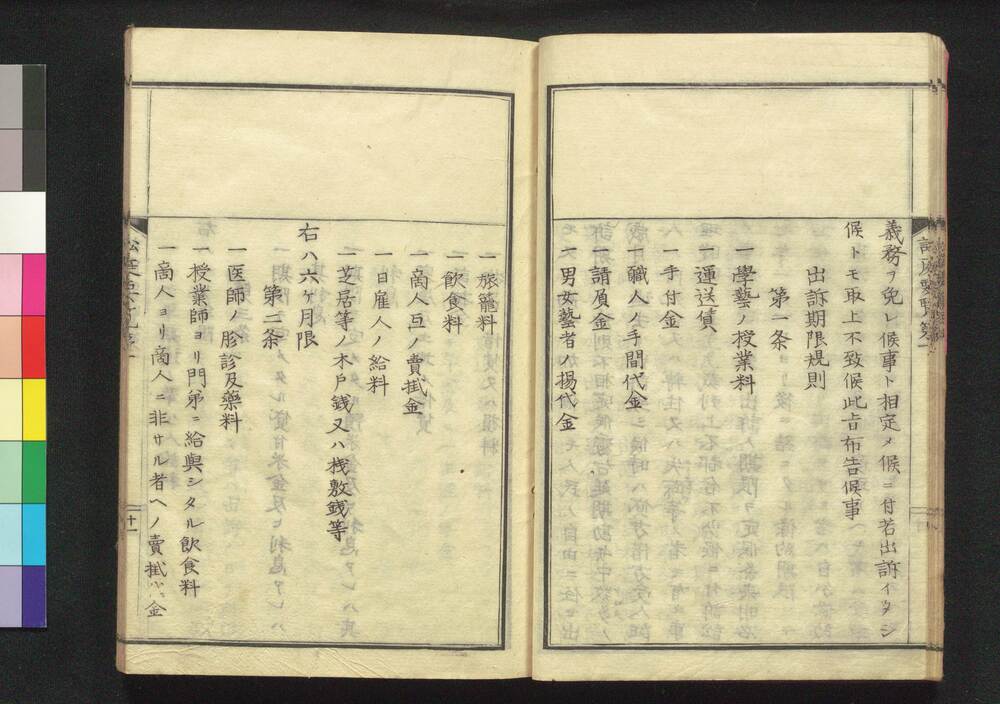 義務ヲ免レ候事ト相定メ候ニ付若出訴イタシ
候トモ取上不致候此旨布告候事
出訴期限規則
第一条
一學藝ノ授業料
一運送賃
一手付金
一職人ノ手間代金
一請負金
一男女藝者ノ揚代金
一旅籠料
一飲食料
一商人互ノ賣掛金
一日雇人ノ給料
一芝居等ノ木戸銭又ハ桟敷銭等
右ハ六ケ月限
第二条
一医師ノ胗診及藥料
一授業師ヨリ門弟ニ給與シタル飲食料
一商人ヨリ商人ニ非サル者ヘノ賣掛金
十一